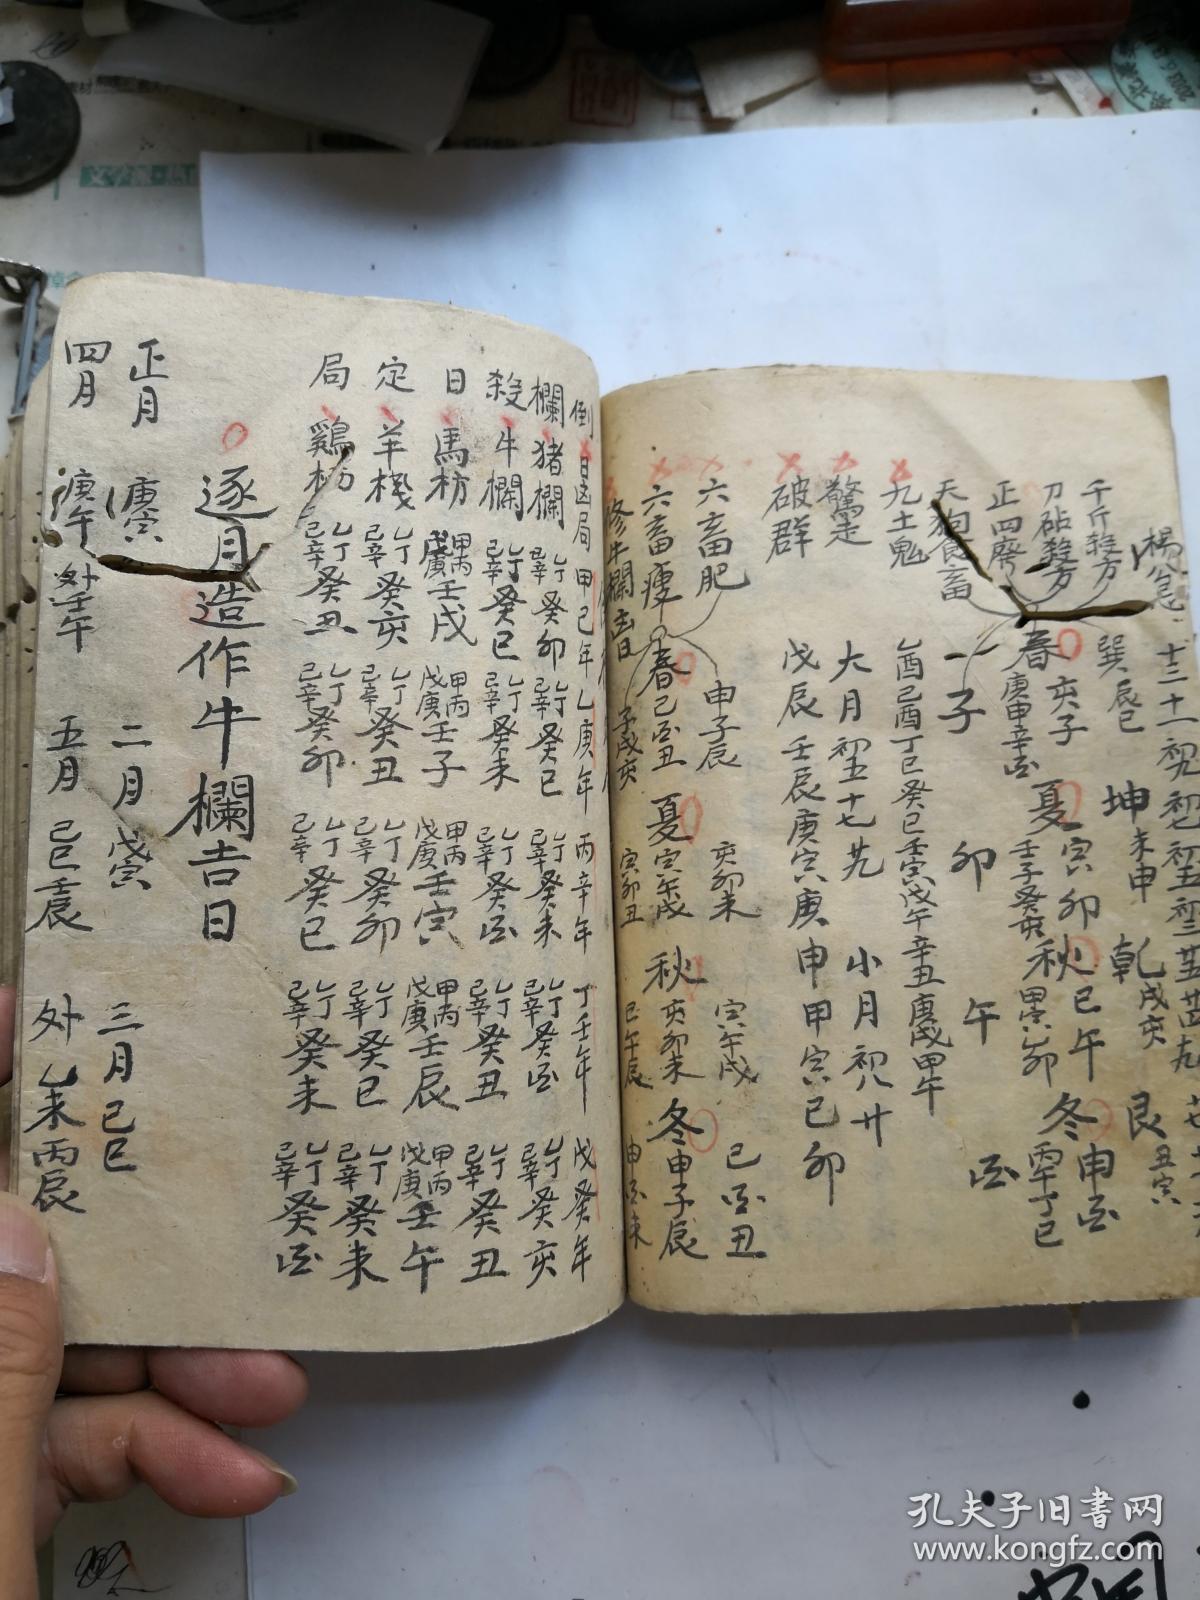 楊公忌 十三 十一 初九 初七 初五 初三
千斤殺方 巽辰巳 坤未申 乾戌亥 艮丑寅
刀砧殺方 春亥子 夏寅卯 秋巳午 冬申酉
正四廢 庚申辛酉 壬子癸亥 甲寅乙卯 丁巳
天狗食畜 子 卯 午 酉
九土鬼 乙酉己酉丁巳癸巳壬寅戊午辛丑庚戌甲午
驚走 大月初五十七廿九 小月初八廿
破群 戊辰壬辰庚寅庚申甲寅己卯
六畜肥 申子辰 亥卯未 寅午戌 巳酉丑
六畜瘦 春巳酉丑 夏寅午戌 秋亥卯未 冬申子辰
修牛欄吉日 子戌亥 寅卯丑 巳午辰 申酉未
倒 日凶局 甲己年 乙庚年 丙辛年 丁壬年 戊癸年
欄 猪欄 乙丁己辛癸卯 乙丁己辛癸巳 乙丁己辛癸未 乙丁己辛癸酉 乙丁己辛癸亥
殺 牛欄 乙丁己辛癸巳 乙丁己辛癸未 乙丁己辛癸酉 乙丁己辛癸丑 乙丁己辛癸丑
日 馬枋 甲丙戊庚壬戌 甲丙戊庚壬子 甲丙戊庚壬寅 甲丙戊庚壬辰 甲丙戊庚壬午
定 羊棧 乙丁己辛癸亥 乙丁己辛癸丑 乙丁己辛癸卯 乙丁己辛癸巳 乙丁己辛癸未
局 鷄枋 乙丁己辛癸丑 乙丁己辛癸卯 乙丁己辛癸巳 乙丁己辛癸未 乙丁己辛癸酉
逐月造作牛欄吉日
正月 庚寅 二月 戊寅 三月 己巳
四月 庚午 外壬午 五月 己巳壬辰 外 乙未丙辰
孔夫子旧书网
www.kongfz.com